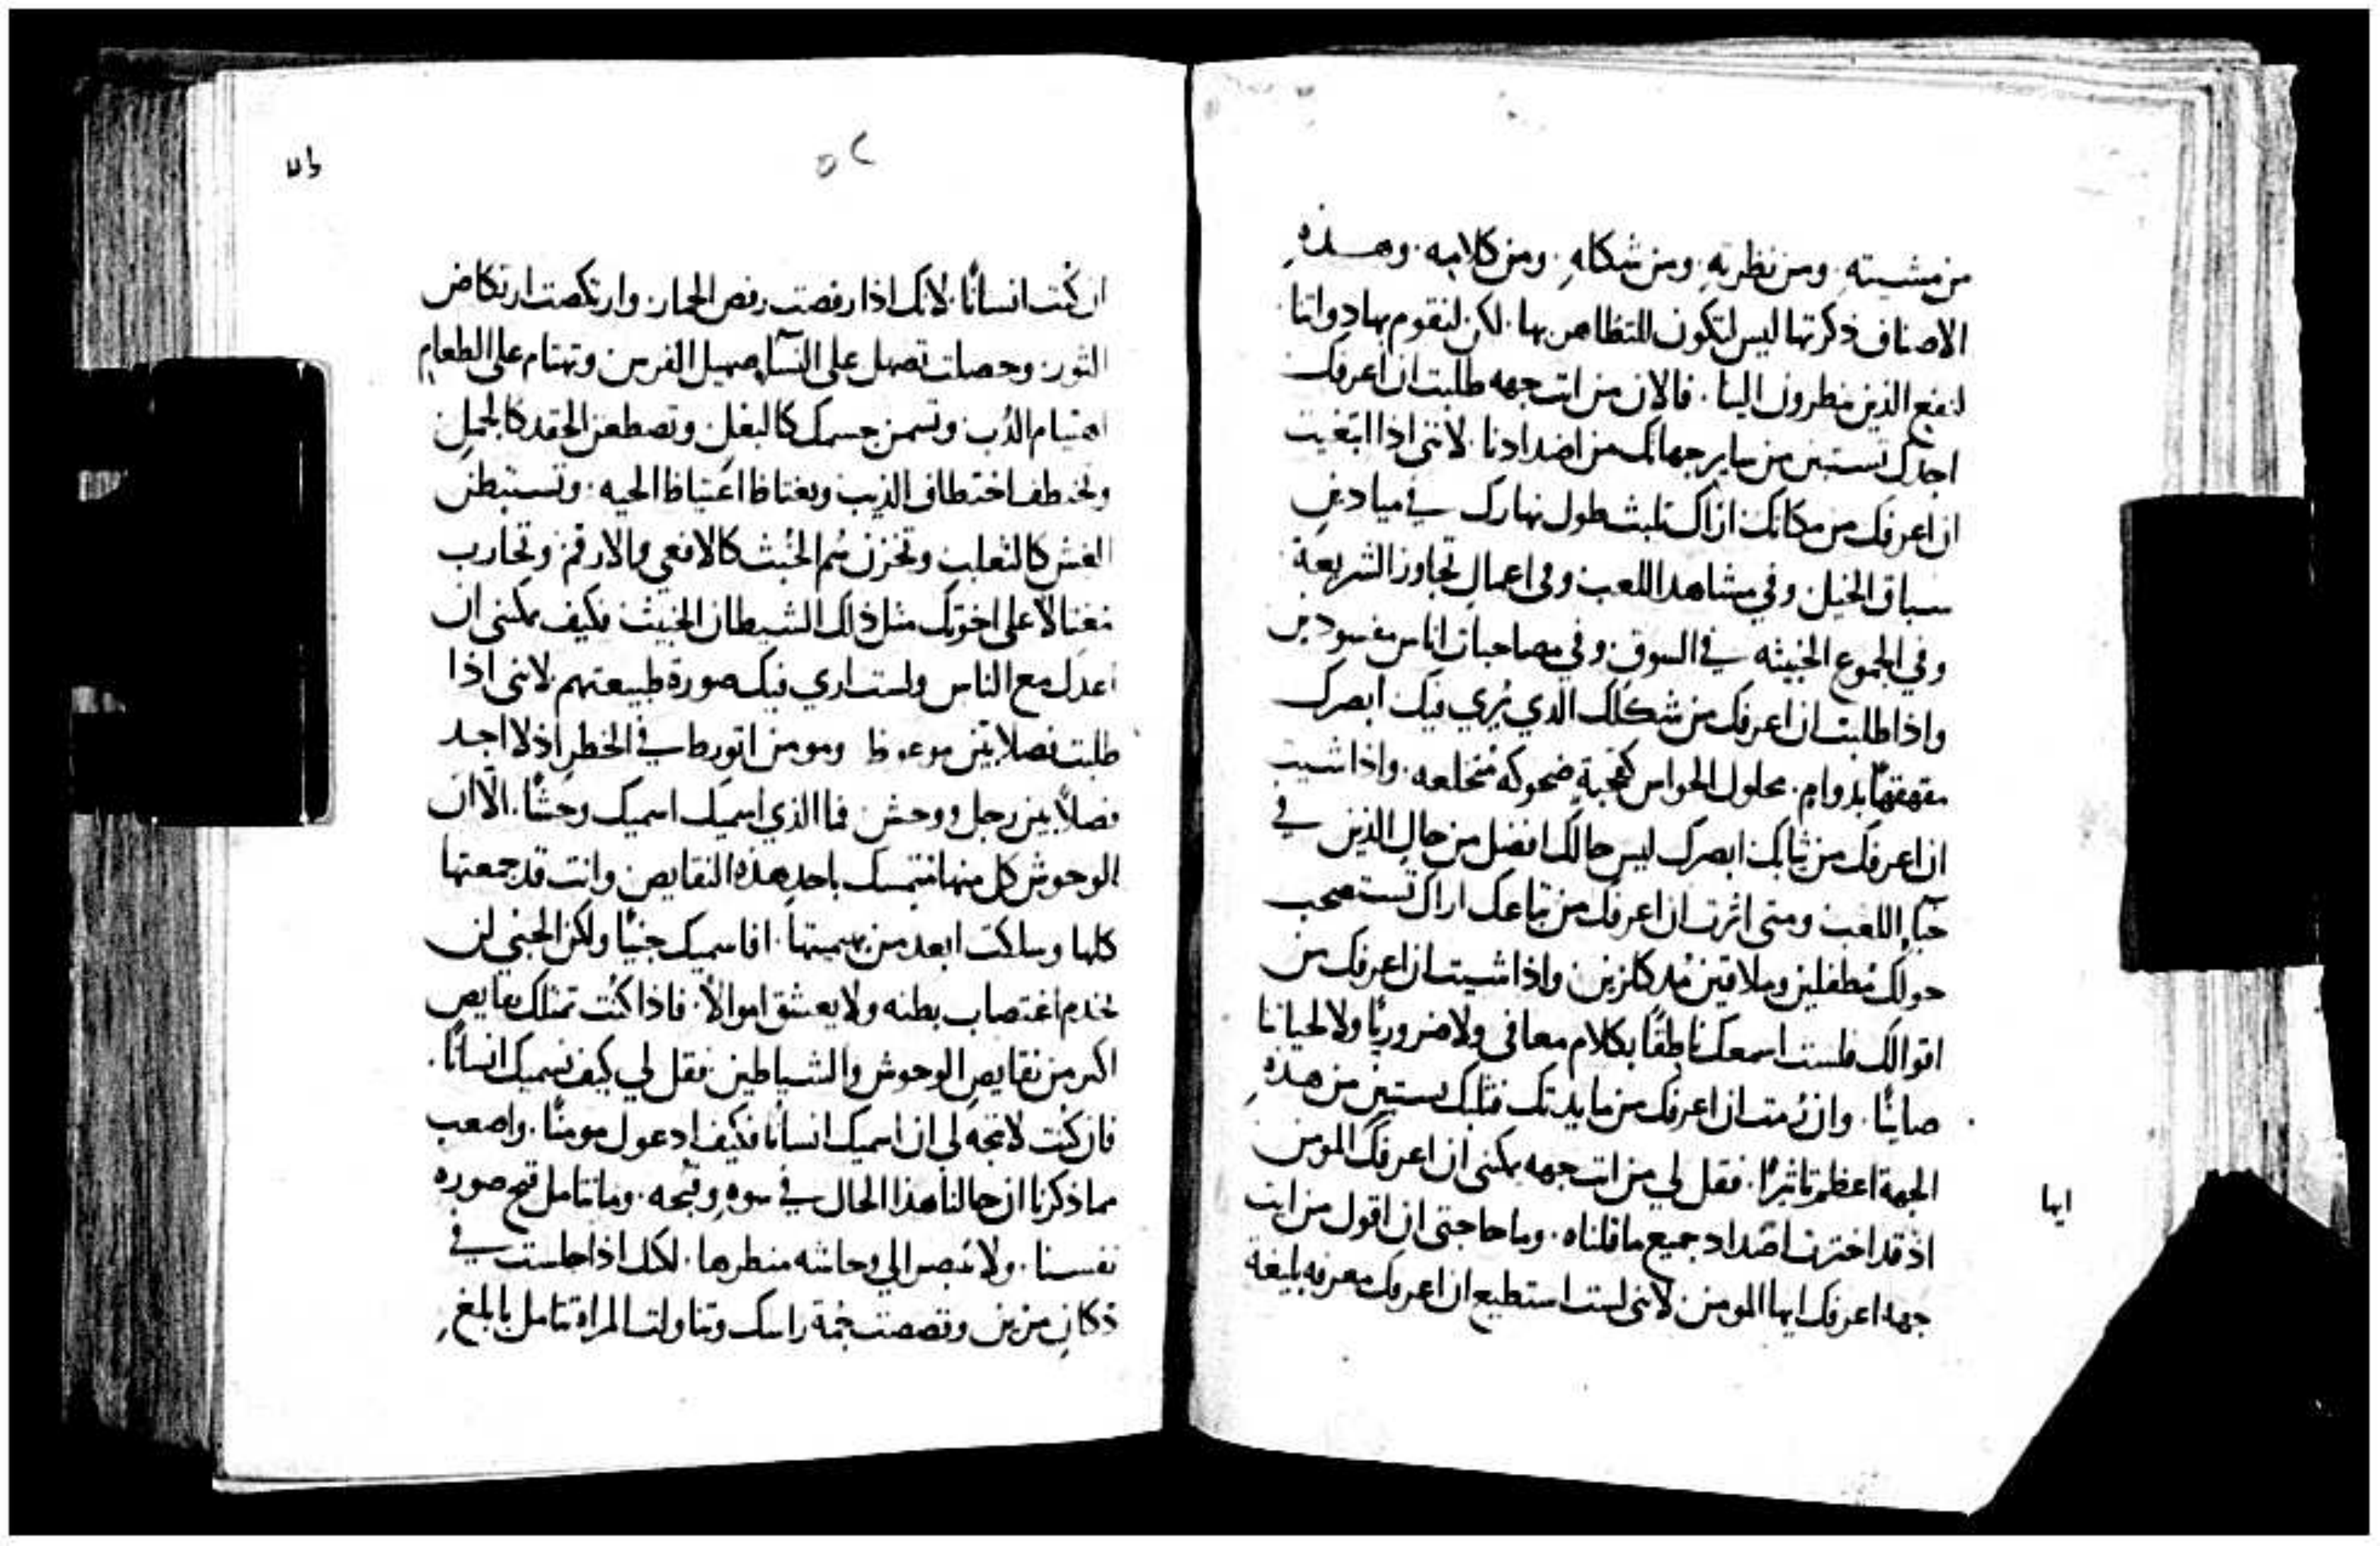 من مشيته. ومن نظرته. ومن شكله. ومن كلامه. وهــذه
الاصناف ذكرتها ليس لتكون للتظاهر بها. لكن لنقوم بها ذواتنا
لنفع الذين ينظرون الينا. فالان من ايت جهه طلبت ان اعرفك
اجدك تستبين من ساير جهاتك من اضدادنا. لانني اذا ابتغيت
ان اعرفك من مكانك اراك تلبث طول نهارك في ميادين
سباق الخيل وفي مشاهد اللعب وفي اعمال تجاوز الشريعة
وفي الجموع الخبيثه في السوق وفي مصاحبات اناس مفسودين
واذا طلبت ان اعرفك من شكلك الذي يُري فيك ابصرك
مقهقهًا بدوامٍ. محلول الحواس كقحبةٍ ضحوكه مُنخلعه. واذا شيت
ان اعرفك من ثيابك ابصرك ليس حالك افضل من حال الذين في
خبآء اللعب ومتى اثرت ان اعرفك من تباعك اراك تستصحب
حولك مُطفلين وملاقين واذا شيت ان اعرفك من
اقوالك فلست اسمعك ناطقًا بكلام معافى ولا ضروريًا ولا لحياتنا
صاينًا. وان رُمت ان اعرفك من مايدتك فثلبك يستبين من هذهِ
الجهة اعظم تاثيرًا. فقل لي من ايت جهه يمكنني ان اعرفك المومن
اذ قد اخترت اضداد جميع ما قلناه. وما حاجتى ان اقول من ايت
جهه اعرفك ايها المومن لانني لست استطيع ان اعرفك معرفه بليغة
ايها
٥٢
ان كُنت انسانًا لانك اذا رفصت رفص الحمار وارتكضت ارتكاض
الثور. وحصلت تصهل على النسآء صهيل الفرس وتهتام على الطعام
اهتيام الدُب وتسمن جسمك كالبغل وتصطعن الحقد كالجمل
وتخطف اختطاف الذيب وتغتاظ اغتياظ الحيه. وتستبطن
الغش كالثعلب وتخزن سُم الخُبث كالافعي والارقم وتحارب
مُغتالاً على اخوتك مثل ذلك الشيطان الخبيث فكيف يمكنني ان
اعدك مع الناس ولست اري فيك صورة طبيعتهم لانني اذا
طلبت فصلا بين موعوظ ومومن اتورط في الخطر اذ لا اجد
فصلاً بين رجل ووحش فما الذي اسميك اسميك وحشًا. الّا ان
الوحوش كل منها متمسك باحد هذه النقايص وانت قد جمعتها
كلها وسلكت ابعد من بهيميتها. افاسميك جنيًا ولكن الجني لن
يخدم اغتصاب بطنه ولا يعشق اموالاً. فاذا كُنت تمتلك نقايص
اكثر من نقايص الوحوش والشياطين فقل لي كيف نسميك انسانًا.
فان كنت لا يتجه لي ان اسميك انسانًا فكيف ادعوك مومنًا. واصعب
مما ذكرنا ان حالنا هذا الحال في سوءٍ وقبحه. وما نتامل قبح صورة
نفسنا. ولا نبصر الي وحاشه منظرها. لكنك اذا جلست في
دكان مزين وقصصت جُمة راسك وتناولت المراة تتامل بابلغ